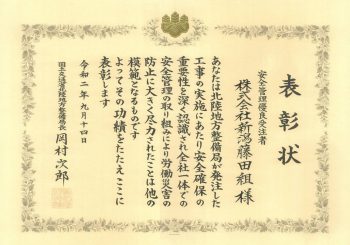 表彰状
安全管理優良受注者
株式会社新潟藤田組 様
あなたは北陸地方整備局が発注した
工事の実施にあたり安全確保の
重要性を深く認識され全社一体での
安全管理の取り組みにより労働災害の
防止に大きく尽力されたことは他の
模範となるものです
よってその功績をたたえここに
表彰します
令和二年九月十四日
国土交通省北陸地方整備局長 岡村次郎